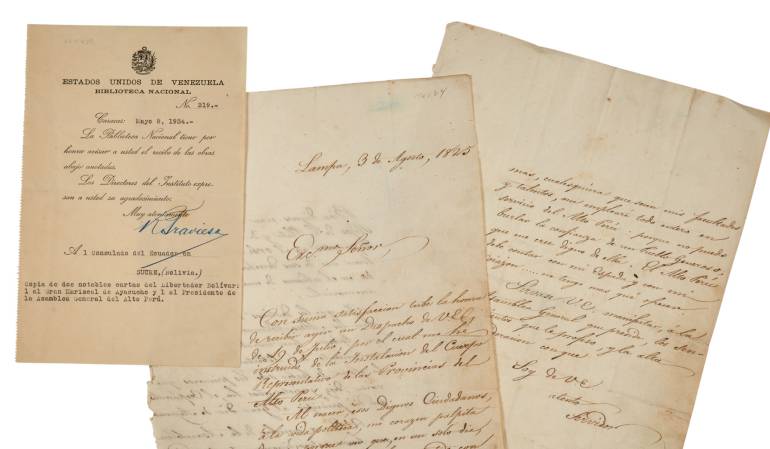 ESTADOS UNIDOS DE VENEZUELA
BIBLIOTECA NACIONAL
No. 219.-
Caracas: Mayo 8, 1934.-
La Biblioteca Nacional tiene por
honra avisar a usted el recibo de las obras
abajo anotadas.
Los Directores del Instituto expre-
san a usted su agradecimiento.
Muy atentamente
A l Consulado del Ecuador en
SUCRE,(Bolivia.)
Copia de dos notables cartas del Libertador Bolívar:
1 al Gran Mariscal de Ayacucho y 1 al Presidente de
la Asamblea General del Alto Perú.
Lampa, 3 de Agosto, 1825
Exc.mo Señor
Con suma satisfaccion tube la honra
de recibir ayer un Despacho de V.E.
de 19 de Julio, por el cual me hé
instruido de la Instalacion del Cuerpo
Representativo de las Provincias del
Alto Perú.
Al nacer esos Dignos Ciudadanos,
á la vida politica, mi corazon palpita
que, en un solo dia,
mas, cualesquiera que sean mis facultades
y talentos, me emplearé todo entero en
servicio del Alto Perú, porque no puedo
burlar la confianza de un Pueblo Generoso,
que me cree digno de ella. El Alto Perú
debe contar con mi Espada y con mi
corazon no tengo mas que ofrecer
Sirvase V.E. manifestar, á la
Asamblea General que preside, los Sen-
timientos que le profeso y la alta
con que
Soy de V.E.
atento
Servidor